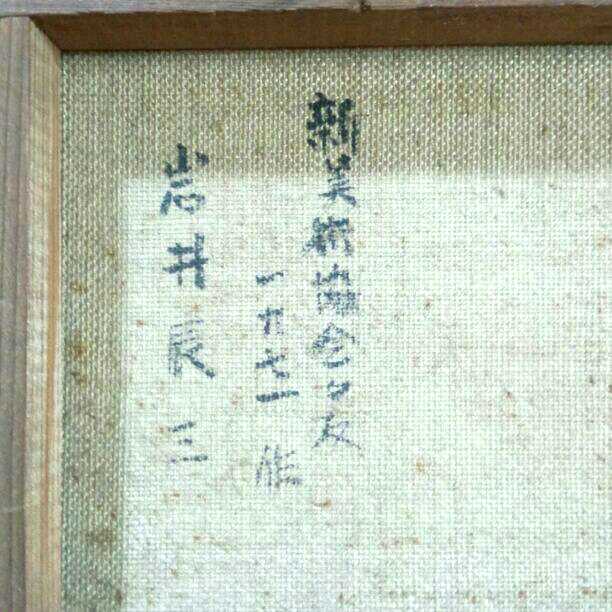 新美術協会会友
一九七一作
岩井辰三